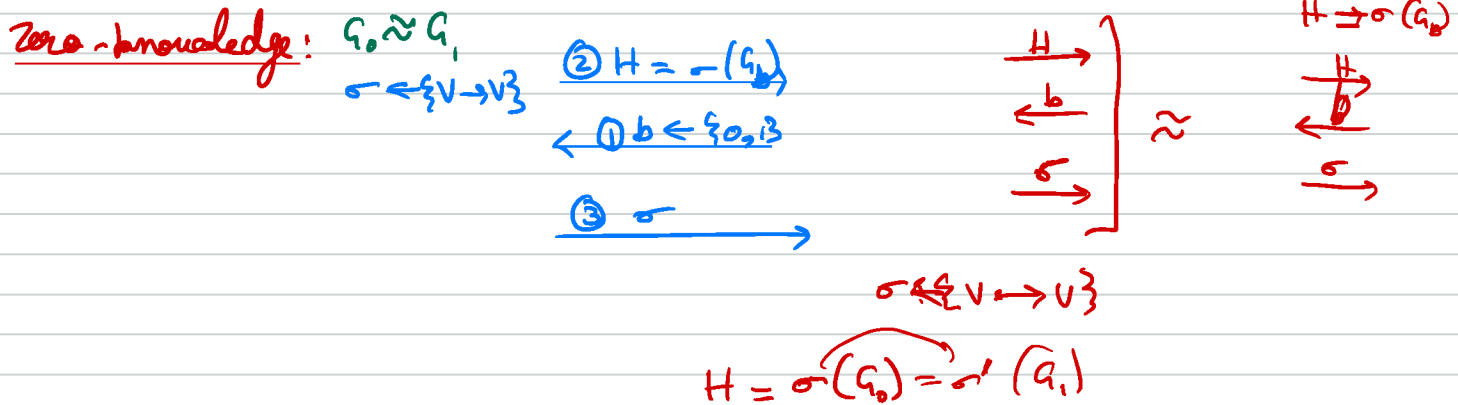 zero-knowledge: G₀ ≈ G₁
σ ← {V → V}
② H = σ(G_b)
① b ← {0,1}
③ σ
H
b
σ
≈
H = σ(G_b)
H
b
σ
σ ← {V → V}
H = σ(G₀) = σ' (G₁)